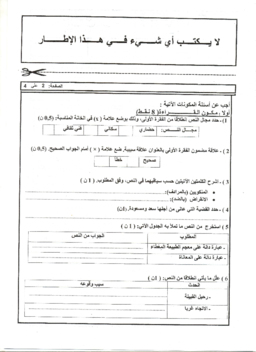 لا يكتب أي شيء في هذا الإطار
الصفحة: 2 على 4
أجب عن أسئلة المكونات الآتية :
أولا ـ مكون القراءة (8 نقط)
1 - حدد مجال النص انطلاقا من الفقرة الأولى، وذلك بوضع علامة (×) في الخانة المناسبة. (0,5 ن)
مجال النص: حضاري سكاني فني ثقافي
2 - علاقة مضمون الفقرة الأولى بالعنوان علاقة سببية. ضع علامة (×) أمام الجواب الصحيح. (0,5 ن)
صحيح خطأ
3 - اشرح الكلمتين الآتيتين حسب سياقيهما في النص، وفق المطلوب. (1 ن)
المنكوبين (بالمرادف):
الانقراض (بالضد):
4 - حدد القضية التي عانى من أجلها سعد ومسعودة.
5 - استخرج من النص ما تملأ به الجدول الآتي:
المطلوب الجواب من النص
- عبارة دالة على معجم الطبيعة المعطاء
- عبارة دالة على المعاناة
6 - علل ما يأتي انطلاقا من النص:
الحدث سبب وقوعه
- رحيل القبيلة
- الاتجاه غربا